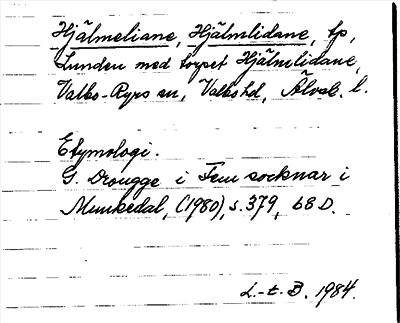 Hjälmeliane, Hjälmlidane, tp,
Lunden med torpet Hjälmlidane,
Valbo-Ryrs sn, Valbohd, Älvsb. l.
Etymologi.
G. Drougge i Fem socknar i
Munkedal, (1980), s. 379, 68 D.
L.-t. B. 1984.